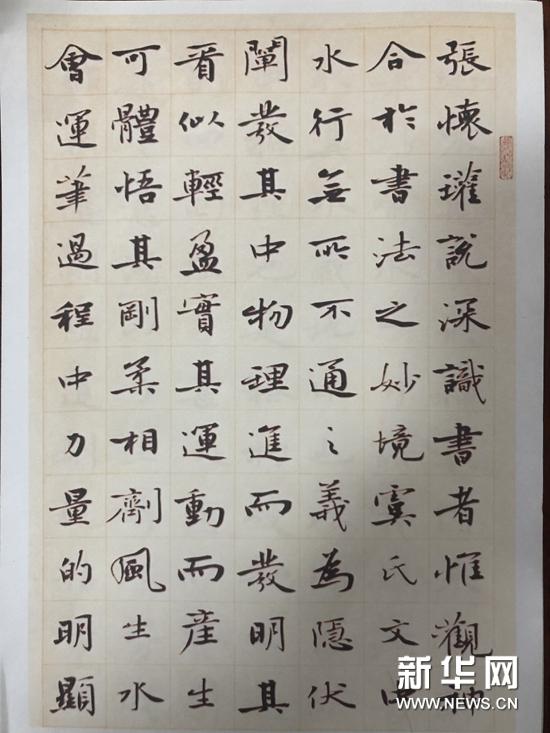 張懷瓘說深識書者惟觀神
合於書法之妙境虞氏文中
水行無所不通之義為隱伏
闡發其中物理進而發明其
看似輕盈實其運動而產生
可體悟其剛柔相劑風生水
會運筆過程中力量的明顯
新华网
WWW.NEWS.CN